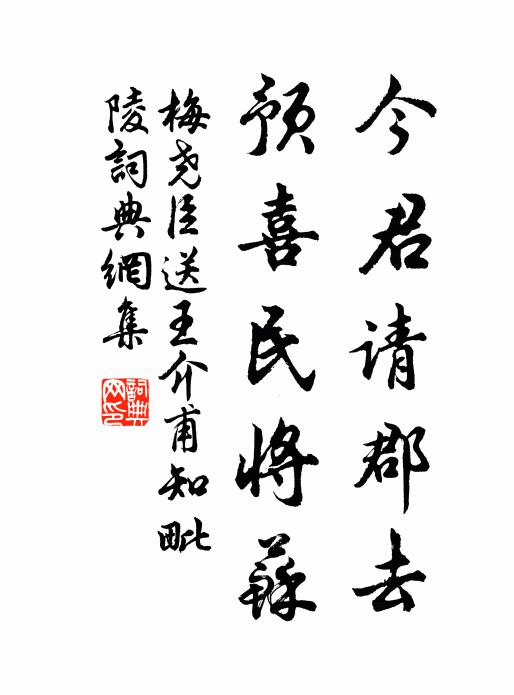 今君请郡去
预喜民将蘇
梅尧臣送王介甫知毗
陵詞典網集
詞典网印